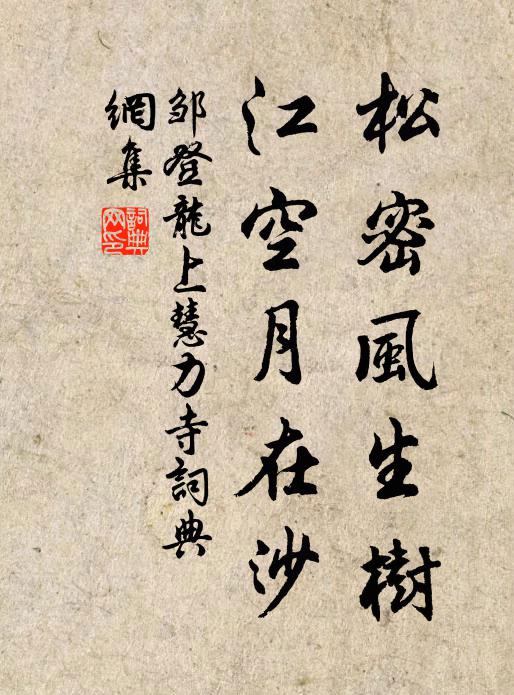 松密風生樹
江空月在沙
邹登龍上慧力寺詞典
網集
詞典
网印